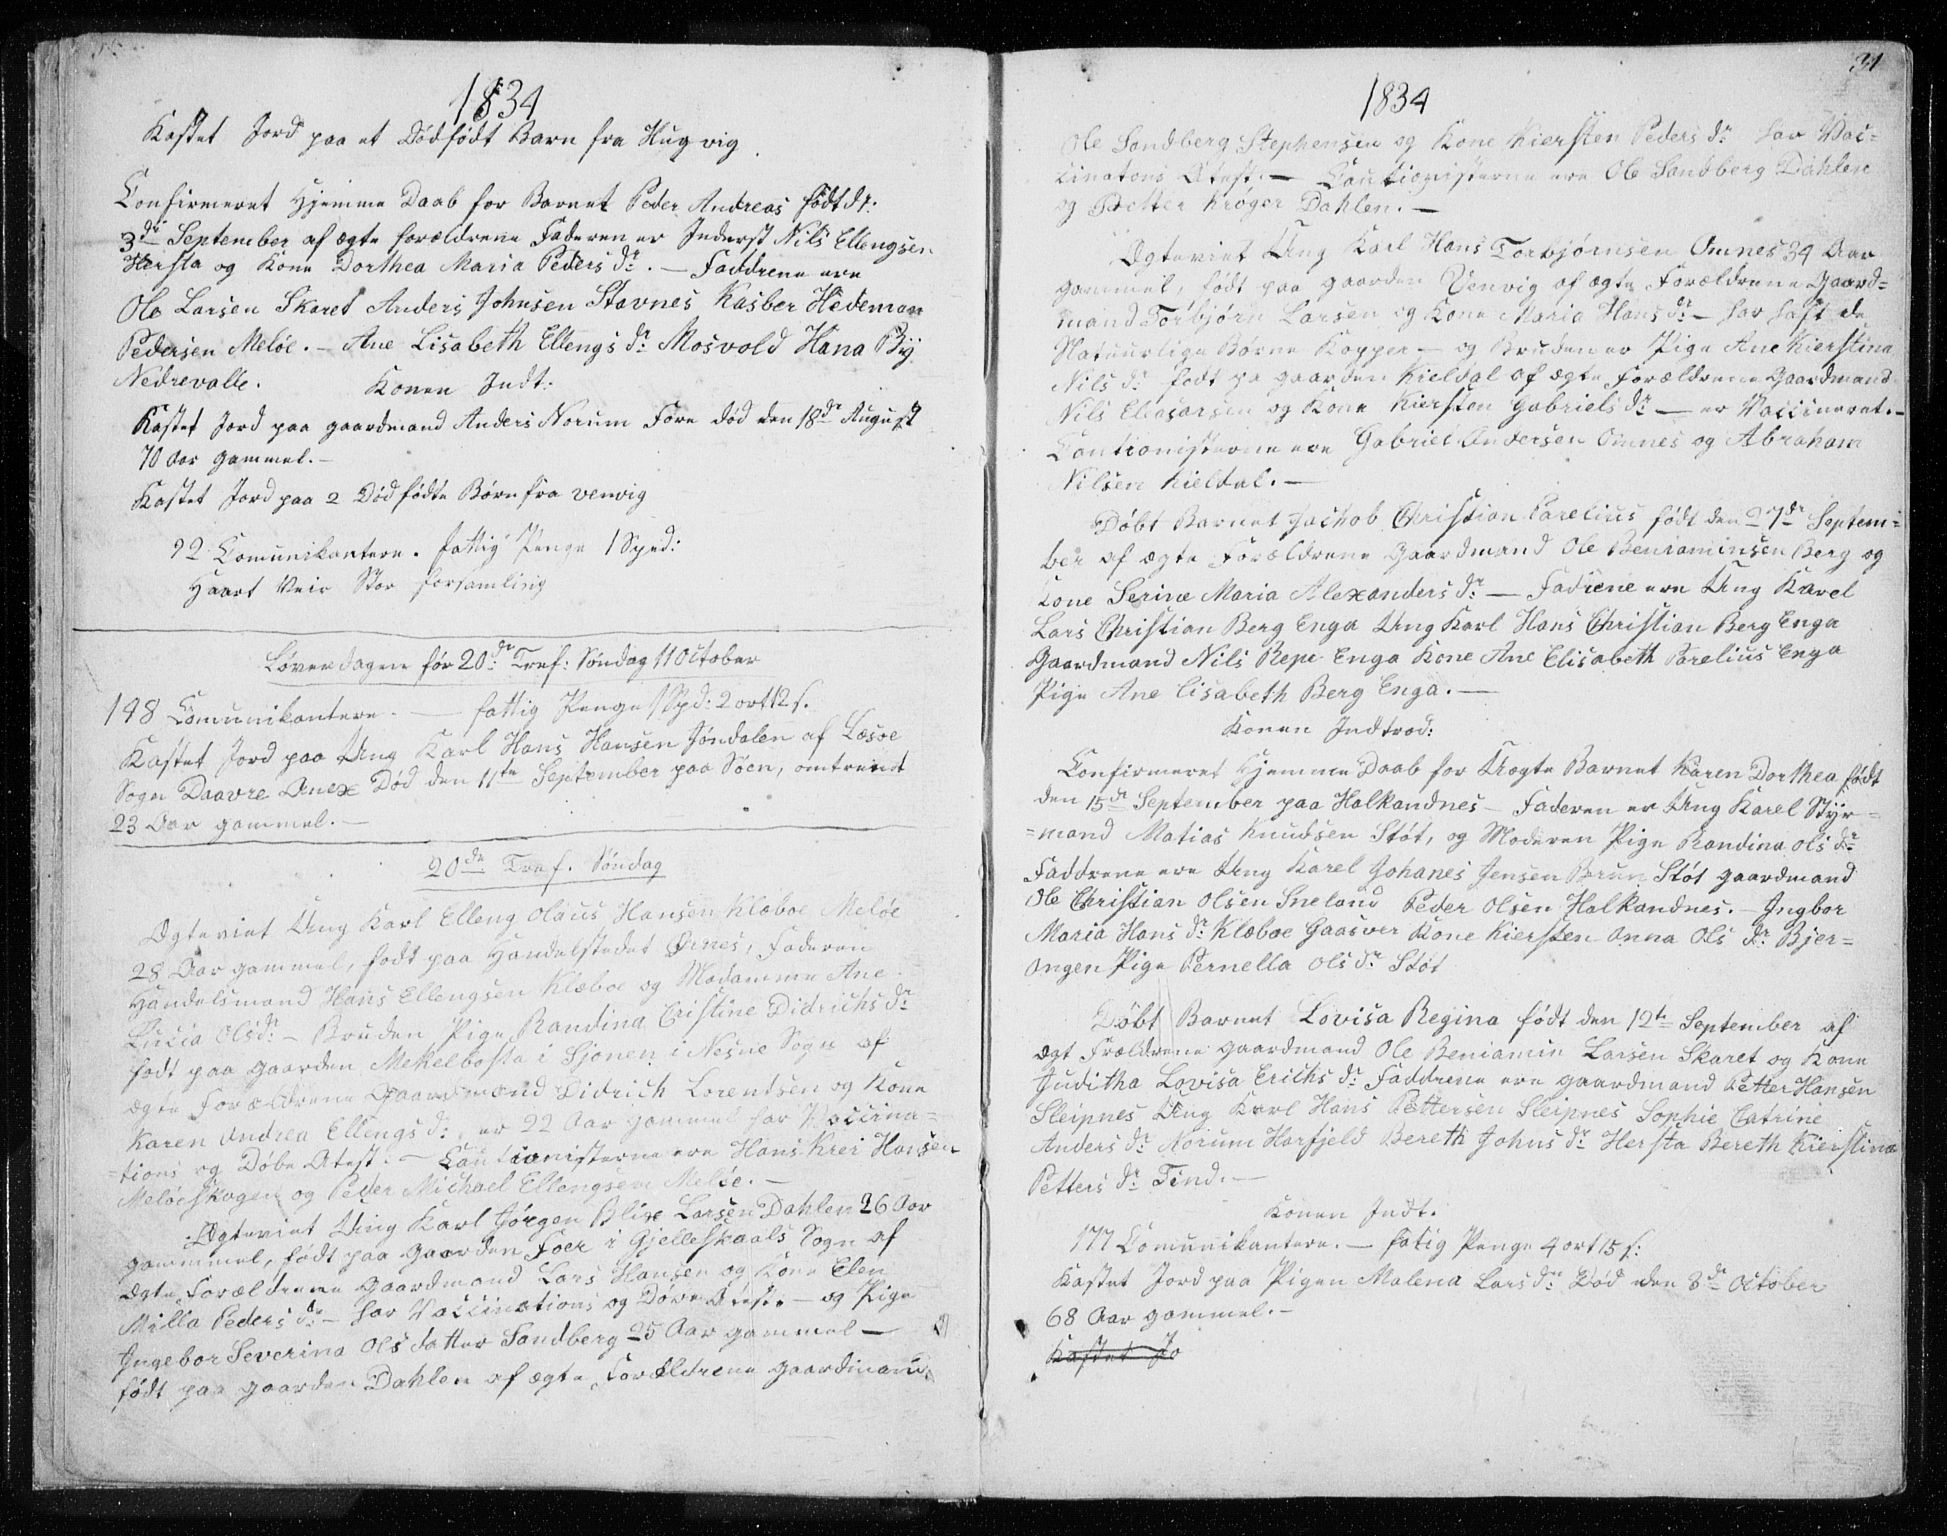 1834
Kastet Jord paa et Dødfødt Barn fra Hugvig
Confirmeret Hjemme Daab for Barnet Peder Andreas født d:
3de September af ægte forældrene Faderen er Inderst Nils Ellengsen
Hersta og Kone Dorthea Maria Peders dr. — Faddrene ere
Ole Larsen Skaret Anders Johnsen Stavnes Kasber Hedeman
Pedersen Meløe. — Ane Lisabeth Ellengs dr Mosvold Hana By
Nedrevalle. Konen Indt:
Kastet Jord paa gaardmand Anders Norum Fore død den 18de August
70 Aar gammel. —
Kastet Jord paa 2 Dødfødte Børn fra venvig
92 Comunikantere. fattig Penge 1 Spd:
Haart Veir Stor forsamling
Løverdagen før 20de Tref: Søndag 11 October
148 Comunikantere. — fattig Penge 1 Spd: 2 ort 12 s.
Kastet Jord paa Ung Karl Hans Hansen Jøndalen af Læsøe
Sogn Daavre Anex Død den 11te September paa Søen, omtrendt
23 Aar gammel. —
20de Tref. Søndag
Ægteviet Ung Karl Elleng Olaus Hansen Klæboe Meløe
28 Aar gammel, født paa Handelstedet Ørnes, Faderen
Handelsmand Hans Ellengsen Klæboe og Madamme Ane
Lucia Olsdr: — Bruden Pige Randina Cristine Didrichs dr
født paa gaarden Mekelbosta i Sjonen i Nesne Sogn af
ægte Forældrene Gaardmand Didrich Lorentsen og Kone
Karen Andrea Ellengs dr: er 22 Aar gammel har Vaccina=
=tions og Døbe Atest. — Cautionisterne ere Hans Krei Hansen
Meløeskogen og Peder Michael Ellengsen Meløe. —
Ægteviet Ung Karl Jørgen Blix Larsen Dahlen 26 Aar
gammmel, født paa Gaarden Foer i Gjelleskaals Sogn af
Ægte Forældrene gaardmand Lars Hansen og Kone Elen
Milla Peders dr — har Vaccinations og Døve Ateste — og Pige
Ingebor Severina Ols datter Sandberg 25 Aar gammel —
født paa gaarden Dahlen af ægte Forældrene gaardmand
31
1834
Ole Sandberg Stephensen og Kone Kiersten Peders dr har Vac=
cinatons Atest. — Cautionisterne ere Ole Sandberg Dahlen
og Petter Krøger Dahlen. —
Ægteviet Ung Karl Hans Torbjørnsen Omnes 34 Aar
gammel, født paa gaarden Venvig af ægte Forældrene Gaard=
mand Torbjørn Larsen og Kone Maria Hans dr — har haft de
Natuurlige Børne Kopper — og Bruden er Pige Ane Kierstina
Nils dr født pa gaarden Kieldal af ægte Forældrene Gaardmand
Nils Eliasarsen og Kone Kiersten Gabriels dr — er Vaccineret. —
Cautionisterne ere Gabriel Andersen Omnes og Abraham
Nilsen Kieldal. —
Døbt Barnet Jachob Christian Parelius født den 27de Septem=
ber af ægte Forældrene Gaardmand Ole Beniaminsen Berg og
Kone Serine Maria Alexanders dr — Fadrene ere Ung Karel
Lars Christian Berg Enga Ung Karl Hans Christian Berg Enga
Gaardmand Nils Repe Enga Kone Ane Elisabeth Parelius Enga
Pige Ane Lisabeth Berg Enga. —
Konen Indtrod:
Confirmeret Hjemme Daab for Uægte Barnet Karen Dorthea født
den 15de September paa Halkandnes — Faderen er Ung Karel Styr=
=mand Matias Knudsen Støt, og Moderen Pige Randina Ols dr
Faddrene ere Ung Karel Johanes Jensen Brun Støt gaardmand
Ole Christian Olsen Sneland Peder Olsen Halkandnes. — Ingbor
Maria Hans dr Klæboe Gaasver Kone Kiersten Anna Ols dr Bjer=
angen Pige Pernella Ols dr Støt
Døbt Barnet Lovisa Regina født den 12te September af
ægt Frældrene gaardmand Ole Beniamin Larsen Skaret og Kone
Juditha Lovisa Erichs dr Faddrene ere gaardmand Petter Hansen
Sleipnes Ung Karl Hans Pettersen Sleipnes Sophie Catrine
Anders dr Norum Harfjeld Bereth Johns dr Hersta Bereth Kierstina
Petters dr Tind. —
Konen Indt.
177 Comunikantere. — fatig Penge 4 ort 15 s:
Kastet Jord paa Pigen Malena Lars dr Død den 8de October
68 Aar gammel. —
Kastet Jo